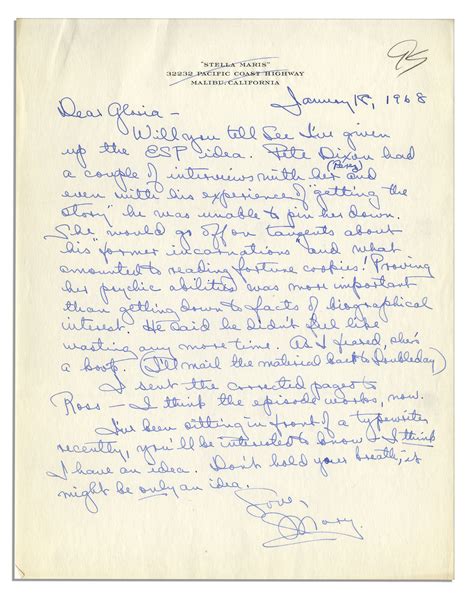 "STELLA MARIS"
32232 PACIFIC COAST HIGHWAY
MALIBU, CALIFORNIA
January 18, 1968
Dear Gloria —
Will you tell See I've given
up the ESP idea. Pete Dixon had
a couple of interviews with her and
even with his experience of "getting the
story" he was unable to pin her down.
She would go off on tangents about
his "former incarnations" and what
amounted to reading fortune cookies! Proving
her psychic abilities was more important
than getting down to facts of biographical
interest. He said he didn't feel like
wasting any more time. As I feared, she's
a boob. (I'll mail the material back to Doubleday)
I sent the corrected pages to
Ross — I think the episode works, now.
I've been sitting in front of a typewriter
recently, you'll be interested to know — I think
I have an idea. Don't hold your breath, it
might be only an idea.
Love,
Mary.